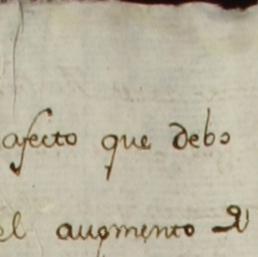 afecto que debo
el augmento